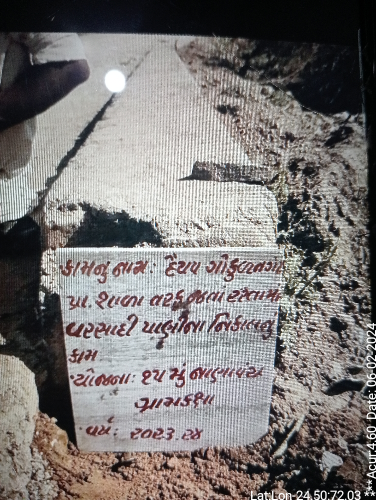 કામનુ નામ: દૈયપ ગોકુળનગર
પ્રા. શાળા તરફ જતા રસ્તામાં
વરસાદી પાણીના નિકાલનુ
કામ
યોજના: ૧૫ મું નાણાપંચ
ગ્રામકક્ષા
વર્ષ: ૨૦૨૩.૨૪
Lat:Lon-24.50:72.03
***Acur:4.60 Date:06-02-2024